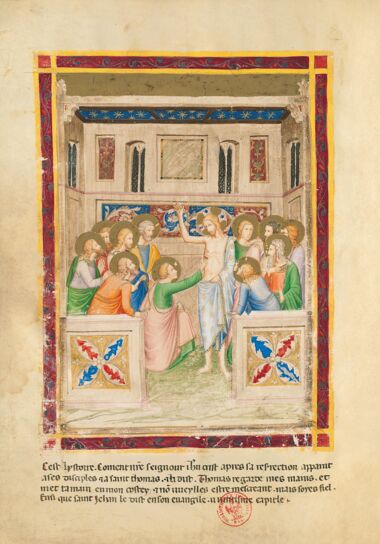 Cest lystoire. Coment nre seignour ihu crist apres sa resurection apparut
a ses disciples et a saint thomas. et li dist. Thomas regarde mes mains. et
met ta main en mon costey. et no vueylles estre mescreant. mais soyes fiel.
Ensi que saint Jehan le dist en son evangile. u vintisme capitle.